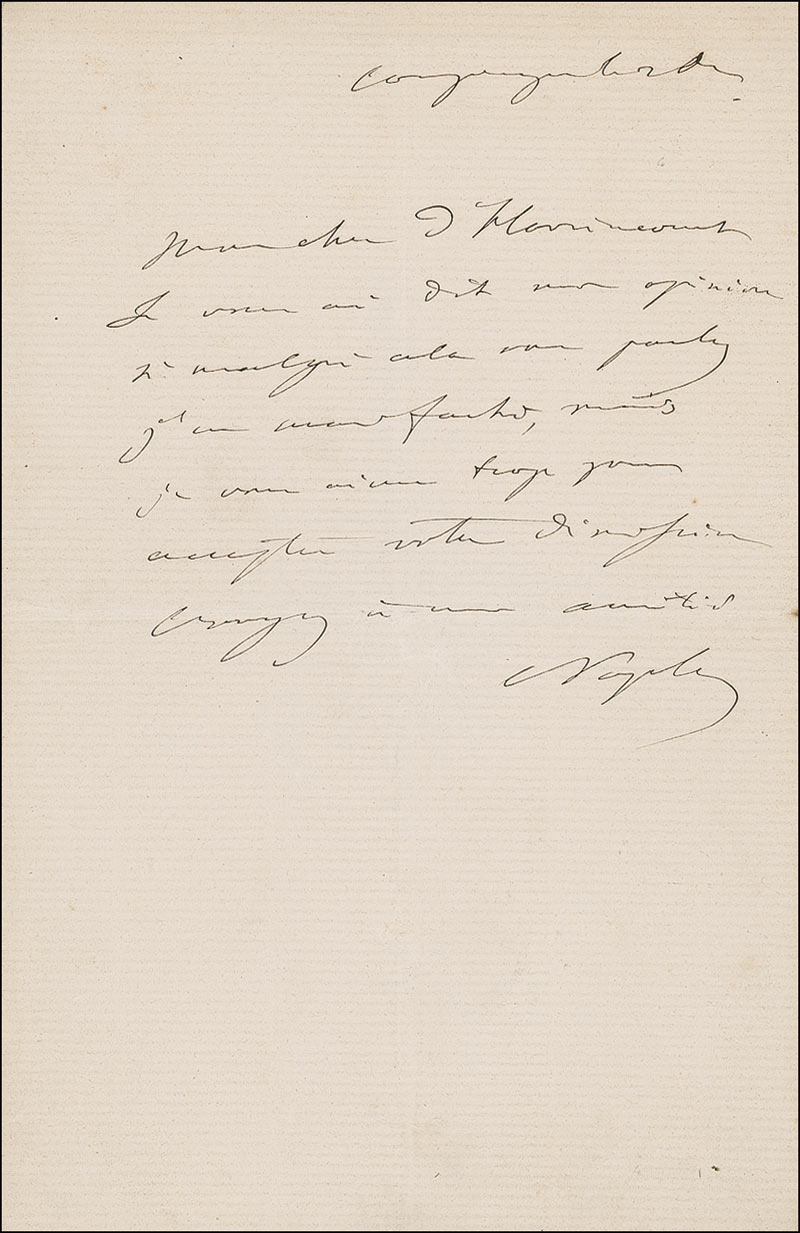 Mon cher d'Havrincourt
Je vous ai dit mon opinion
si malgré cela vous parlez
j'en serai fâché, mais
je vous aime trop pour
accepter votre démission
croyez à mon amitié
Napoléon